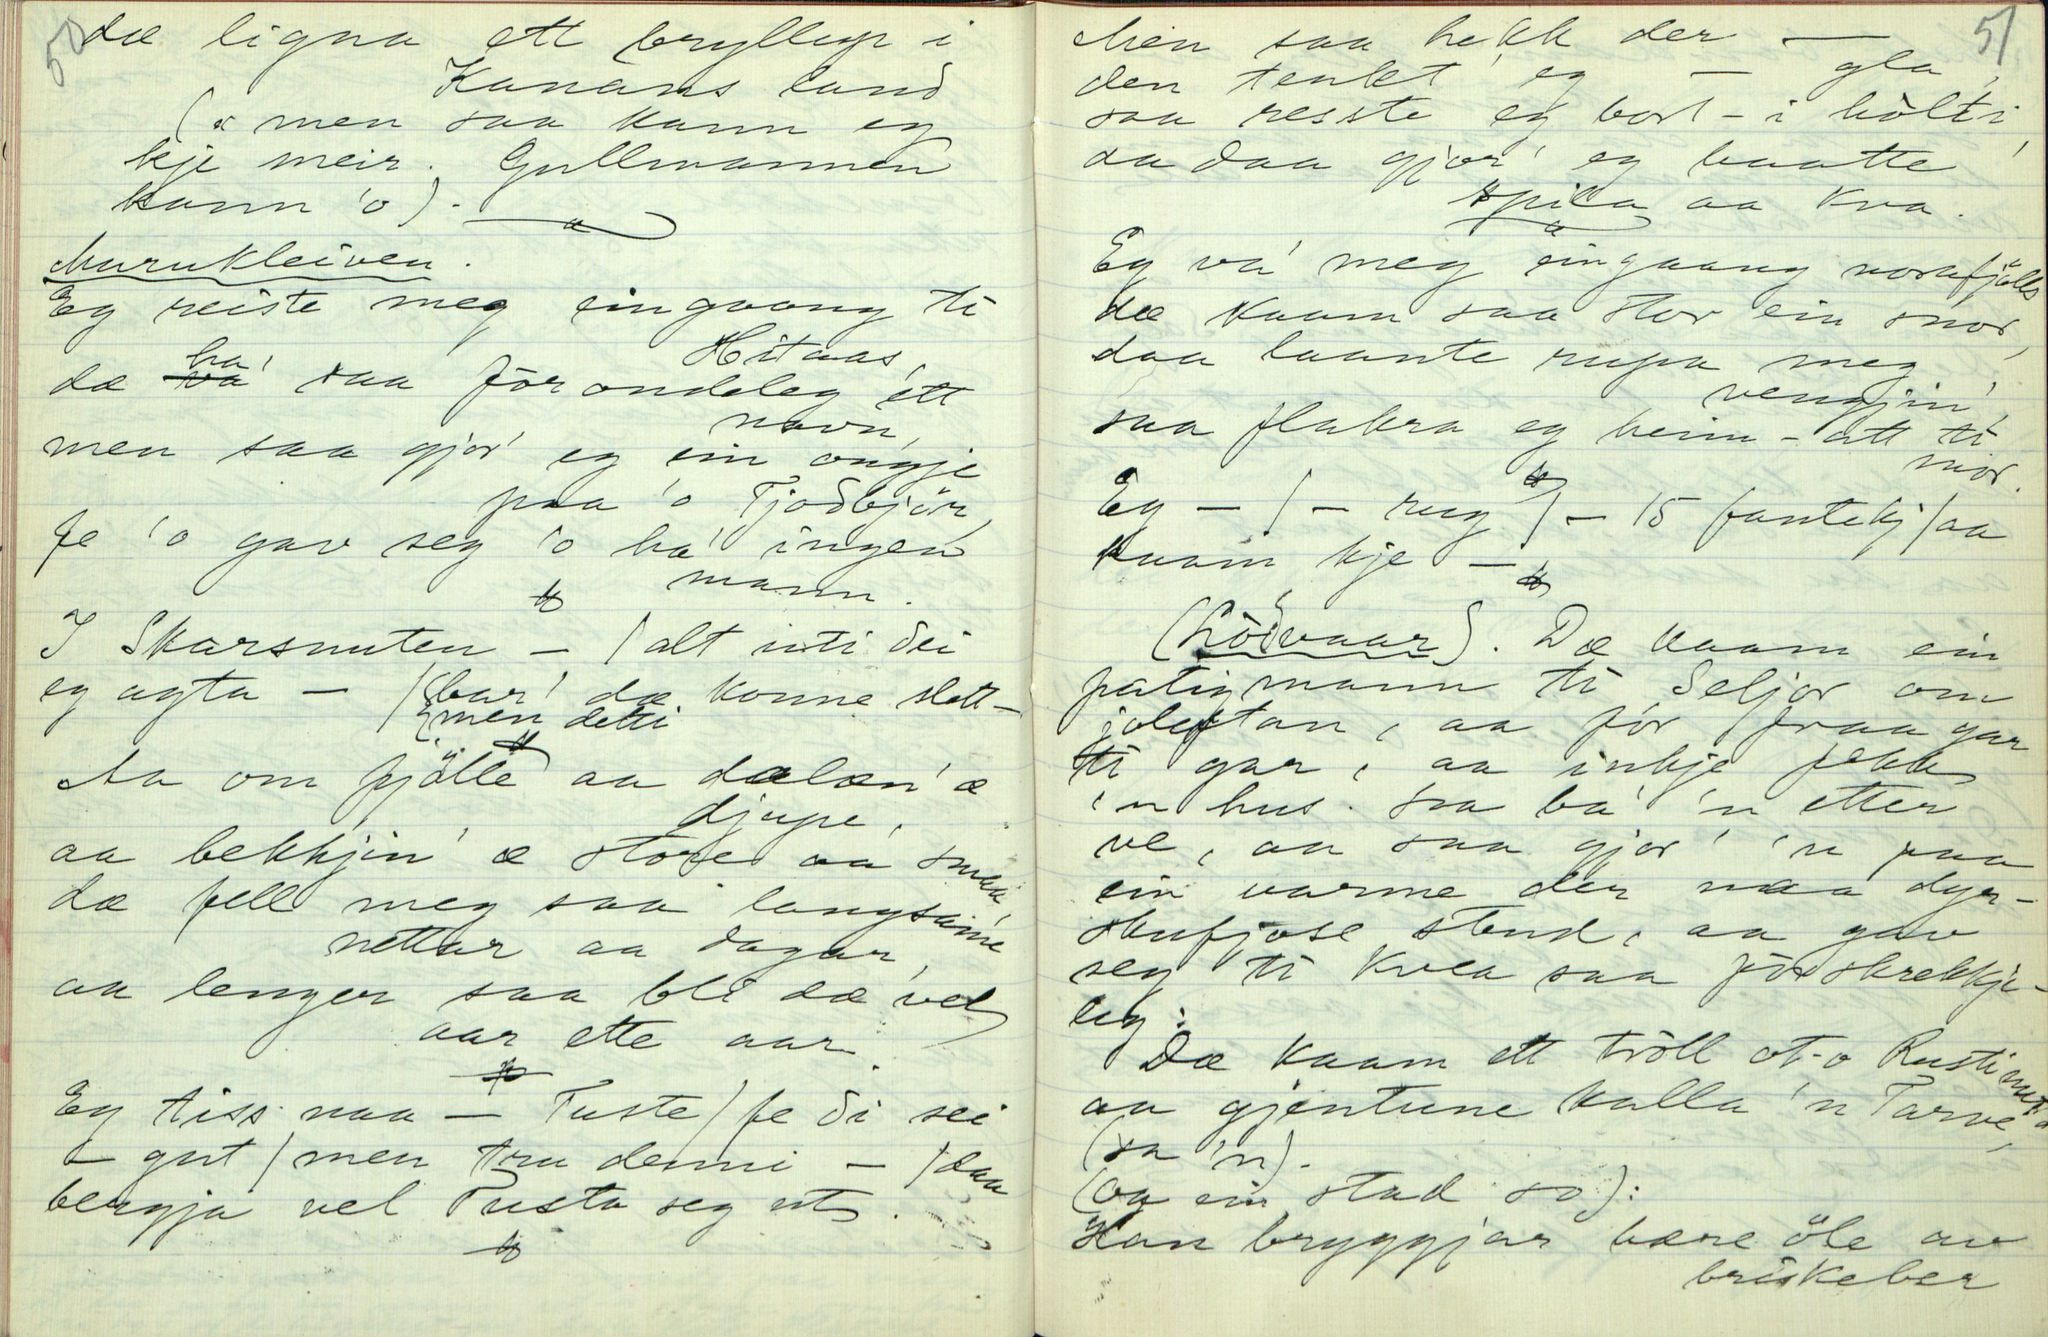 50
dæ ligna ett bryllup i
Kanans land
(men saa kann eg
kje meir. Gullmannen
kann 'o).
Murukleiven.
Eg reiste meg eingaang ti
Hitaas,
dæ ha' saa förondeleg ett
navn,
men saa gjor' eg ein ongje
paa 'o Tjodbjör,
fe 'o gav seg 'o ha' ingen
mann.
I Skarsnuten – / alt inti dei
eg agta – / bar' dæ konne slett –
men detti
Aa om fjölle aa dælæn' æ
djupe,
aa bekkjin' æ store aa smaa,
dæ fell meg saa langsame
nettar aa dagar,
aa lenger saa bli dæ vel
aar ette aar.
Eg tiss naa – Tuste / fe di sei
– gut / men tru denni – / daa
bergja vel Tusta seg ut.
51
Men saa hekk der —
den tenkt' eg — gla,
saa resste eg bort - i hölti
da daa gjor' eg baatte
spila aa kva.
Eg va' meg eingaang norafjölls
dæ kaam saa stor ein snor,
daa laante rupa meg
vengjin',
saa flabra eg heim - att ti
mor.
Eg – / – rug / – 15 fantekj / aa
kaam kje –
(Lödvaar). Dæ kaam ein
fatigmann ti Seljor om
joleftan, aa för fraa gar
ti gar, aa inkje fekk
'n hus. Saa ba' 'n etter
ve, aa saa gjor' 'n paa
ein varme der naa dyr-
skufjose stend, aa gav
seg ti kvea saa förskrekkje-
leg:
Dæ kaam ett tröll ot-o Rustinut
aa gjentune kalla 'n Tarve,
(sa 'n).
(aa ein stad so):
Han bryggjar bære öle av
briskeber